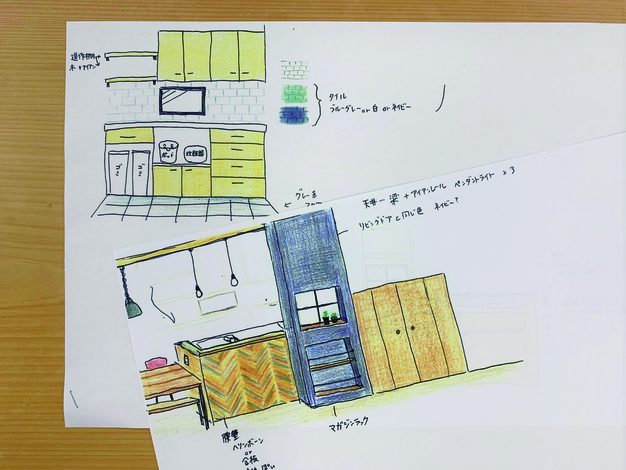 造作棚
木+アイアン
ゴミ
ゴミ
ポット
炊飯器
タイル
ブルーグレー or 白 or ネイビー
グレー系
天井→梁+アイアンレール ペンダントライト x3
リビングドアと同じ色 ネイビー?
腰壁
ヘリンボーン
or
合板
マガジンラック